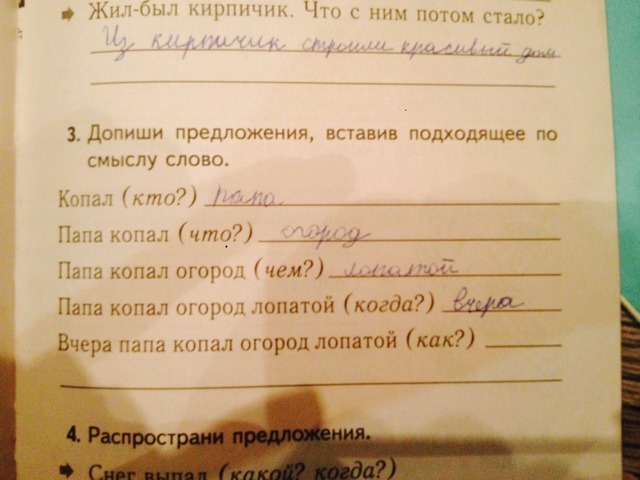 ➡ Жил-был кирпичик. Что с ним потом стало?
Из кирпичик строили красивый дом
3. Допиши предложения, вставив подходящее по
смыслу слово.
Копал (кто?) папа
Папа копал (что?) огород
Папа копал огород (чем?) лопатой
Папа копал огород лопатой (когда?) вчера
Вчера папа копал огород лопатой (как?)
4. Распространи предложения.
➡ Снег выпал (какой? когда?)